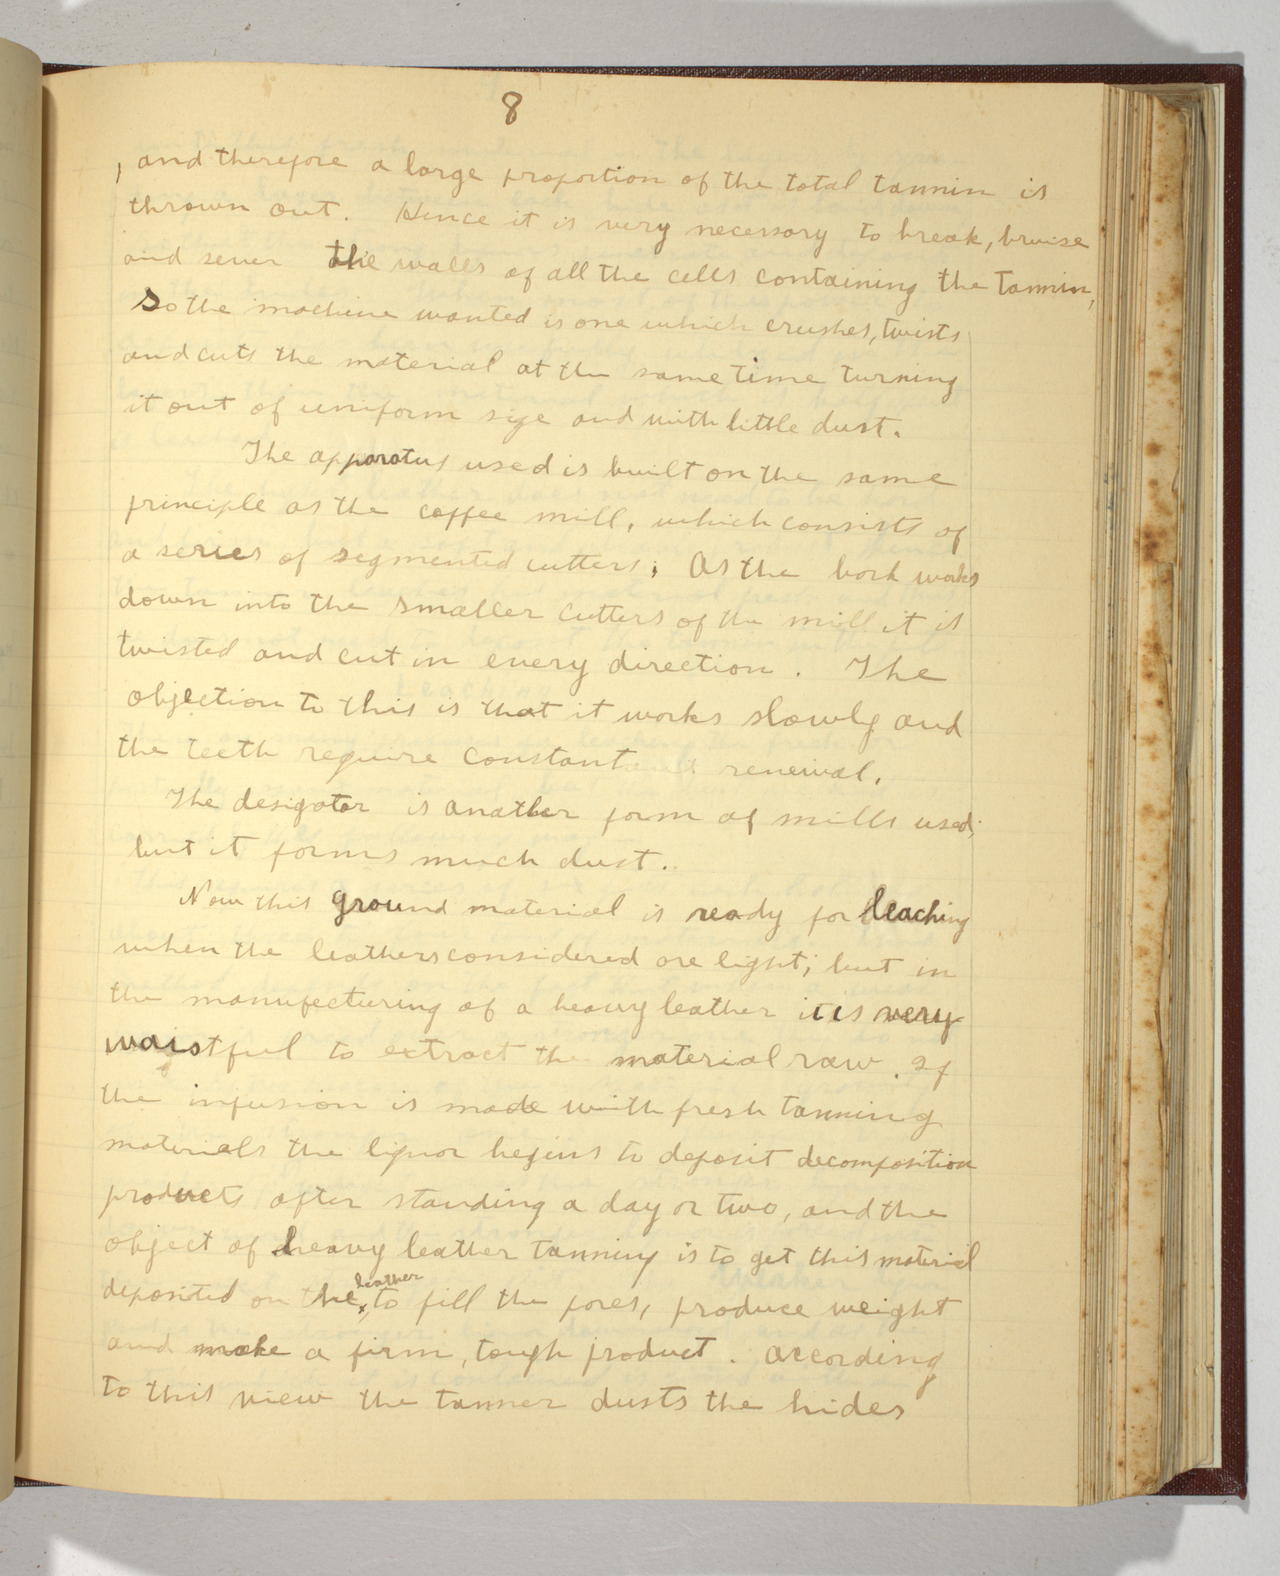 8
, and therefore a large proportion of the total tannin is
thrown out. Hence it is very necessary to break, bruise
and sever the walls of all the cells containing the tannin,
So the machine wanted is one which crushes, twists
and cuts the material at the same time turning
it out of uniform size and with little dust.
The apparatus used is built on the same
principle as the coffee mill, which consists of
a series of segmented cutters; As the bark works
down into the smaller cutters of the mill it is
twisted and cut in every direction. The
objection to this is that it works slowly and
the teeth require constant renewal.
The desigator is another form of mills used;
but it forms much dust.
Now this ground material is ready for leaching
when the leathers considered are light; but in
the manufecturing of a heavy leather it is very
waistful to extract the material raw. If
the infusion is made with fresh tanning
materials the liquor begins to deposit decomposition
products after standing a day or two, and the
object of heavy leather tanning is to get this material
leather
deposited on the, to fill the pores, produce weight
and make a firm, tough product. According
to this view the tanner dusts the hides